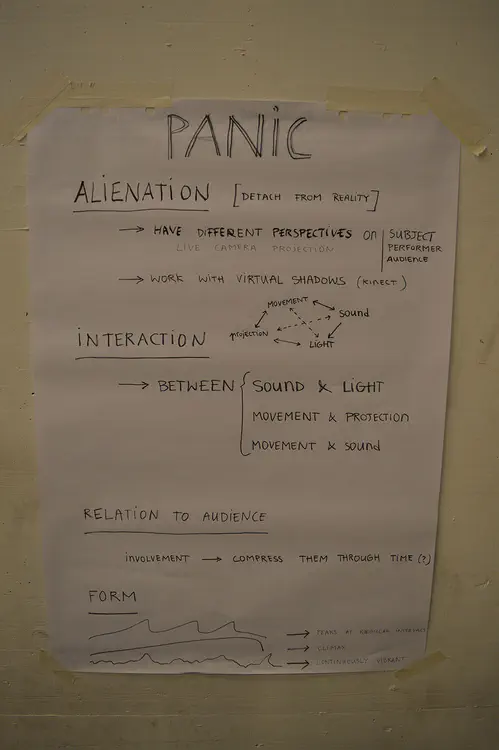 PANIC
ALIENATION [DETACH FROM REALITY]
→ HAVE DIFFERENT PERSPECTIVES ON | SUBJECT
PERFORMER
AUDIENCE
LIVE CAMERA PROJECTION
→ WORK WITH VIRTUAL SHADOWS (KINECT)
MOVEMENT
SOUND
PROJECTION
LIGHT
INTERACTION
→ BETWEEN { SOUND & LIGHT
MOVEMENT & PROJECTION
MOVEMENT & SOUND
RELATION TO AUDIENCE
INVOLVEMENT → COMPRESS THEM THROUGH TIME (?)
FORM
→ PEAKS AT REGULAR INTERVALS
→ CLIMAX
→ CONTINUOUSLY VIBRANT